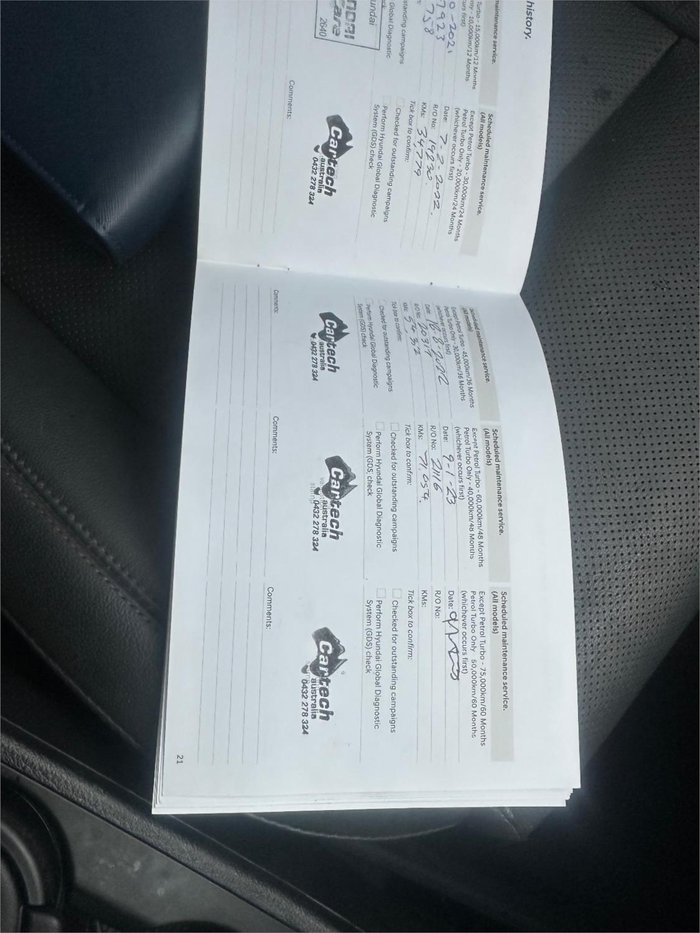 history.
Turbo - 15,000km/12 Months
10,000km/12 Months
2640
Comments:
Scheduled maintenance service.
(All models)
Except Petrol Turbo - 30,000km/24 Months
Petrol Turbo Only - 20,000km/24 Months
(whichever occurs first)
Date: 7-2-2022.
R/O No:
KMs:
Tick box to confirm:
Checked for outstanding campaigns
Perform Hyundai Global Diagnostic
System (GDS) check
Cartech
australia
0432 278 324
Comments:
Scheduled maintenance service.
(All models)
Except Petrol Turbo - 45,000km/36 Months
Petrol Turbo Only - 30,000km/36 Months
(whichever occurs first)
Date:
R/O No: 20317
KMs:
Tick box to confirm:
Checked for outstanding campaigns
Perform Hyundai Global Diagnostic
System (GDS) check
Cartech
australia
0432 278 324
Comments:
Scheduled maintenance service.
(All models)
Except Petrol Turbo - 60,000km/48 Months
Petrol Turbo Only - 40,000km/48 Months
(whichever occurs first)
Date: 9-1-23
R/O No: 2116
KMs: 71,059.
Tick box to confirm:
Checked for outstanding campaigns
Perform Hyundai Global Diagnostic
System (GDS) check
Cartech
australia
0432 278 324
Comments:
Scheduled maintenance service.
(All models)
Except Petrol Turbo - 75,000km/60 Months
Petrol Turbo Only 50,000km/60 Months
(whichever occurs first)
Date:
R/O No:
KMs:
Tick box to confirm:
Checked for outstanding campaigns
Perform Hyundai Global Diagnostic
System (GDS) check
Cartech
australia
0432 278 324
Comments:
21